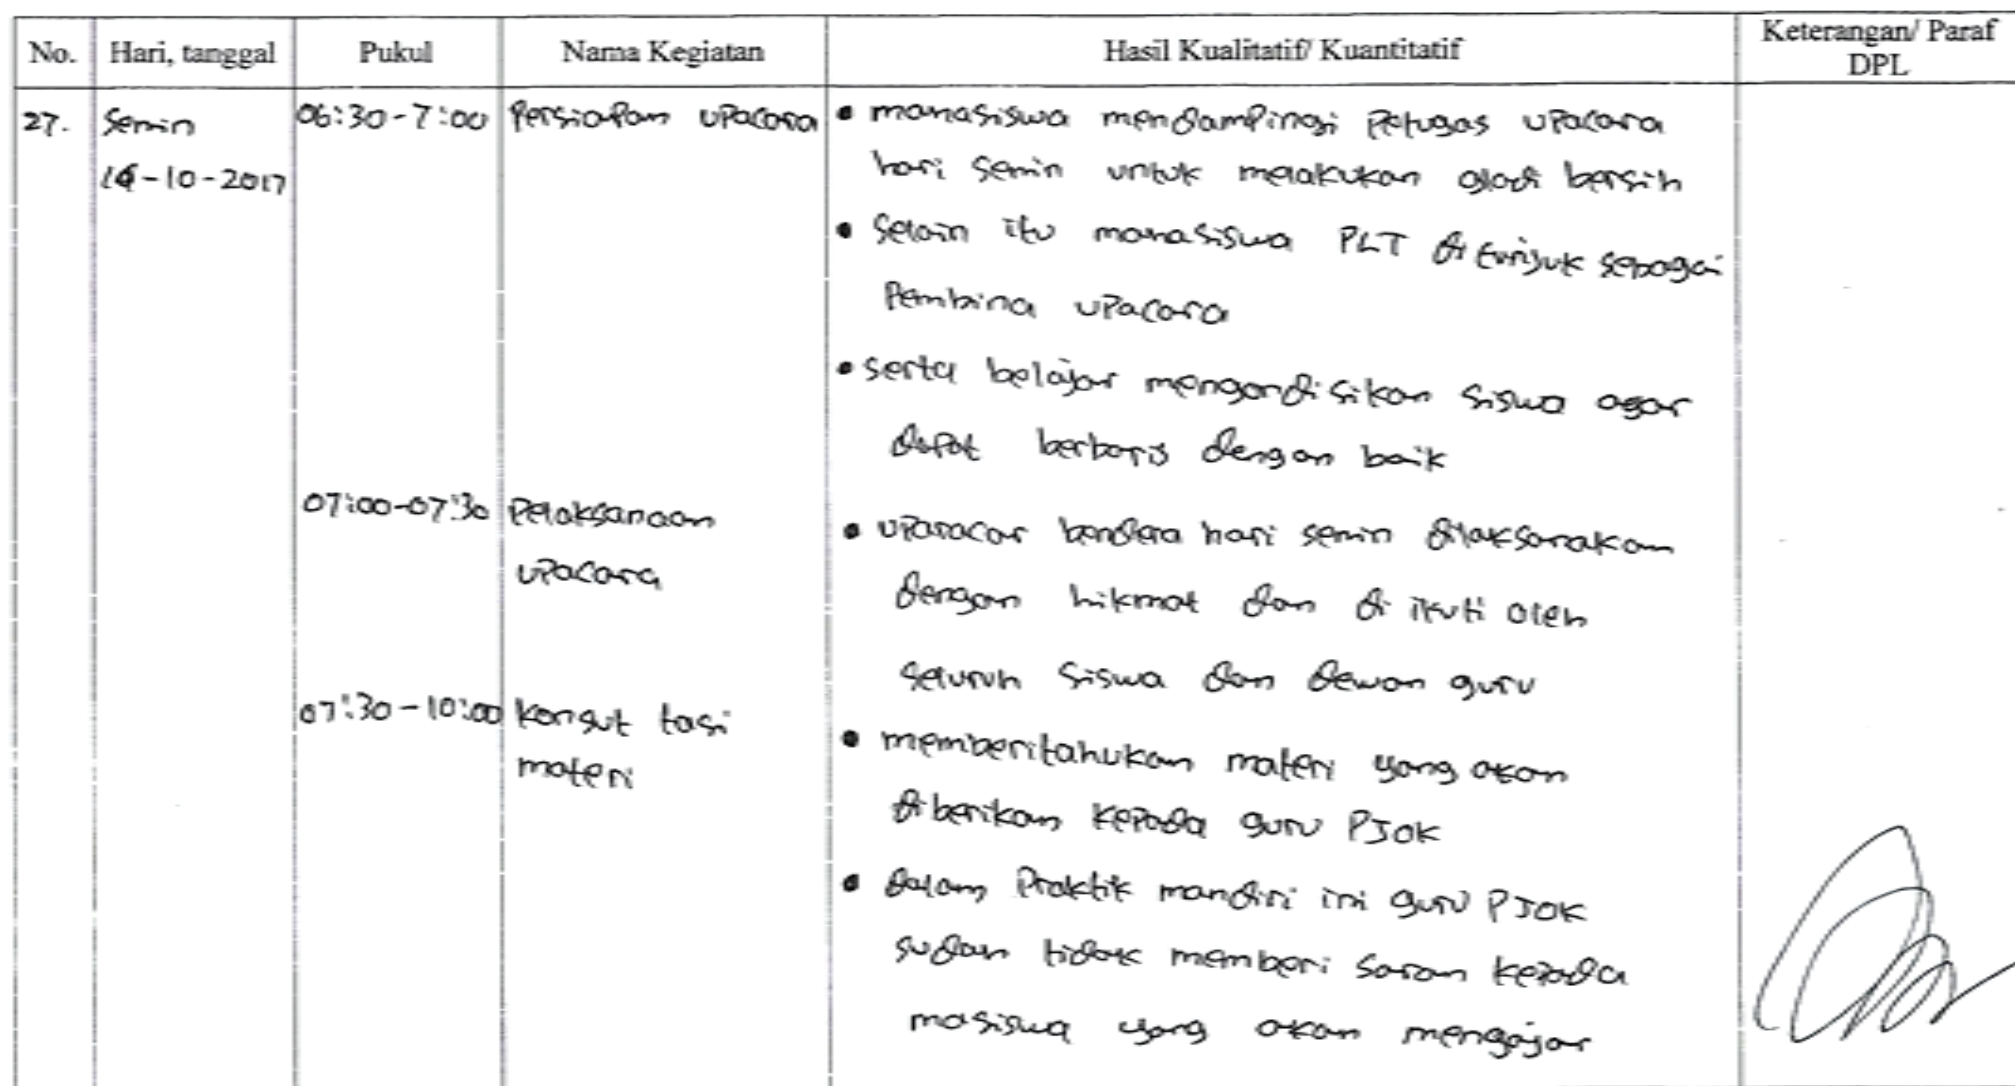 No. Hari, tanggal Pukul Nama Kegiatan Hasil Kualitatif/ Kuantitatif Keterangan/ Paraf DPL
27. Senin 06:30-7:00 Persiapan upacara • mahasiswa mendampingi petugas upacara
16-10-2017 hari senin untuk melakukan gladi bersih
• Selain itu mahasiswa PLT di tunjuk sebagai
Pembina upacara
• serta belajar mengondisikan siswa agar
dapat berbaris dengan baik
07:00-07:30 Pelaksanaan • uparacar bendera hari senin dilaksanakan
upacara dengan hikmat dan di ikuti oleh
seluruh siswa dan dewan guru
07:30-10:00 konsul tasi • memberitahukan materi yang akan
materi diberikan kepada guru PJOK
• dalam Praktik mandiri ini guru PJOK
sudah tidak memberi saran kepada
masiswa yang akan mengajar